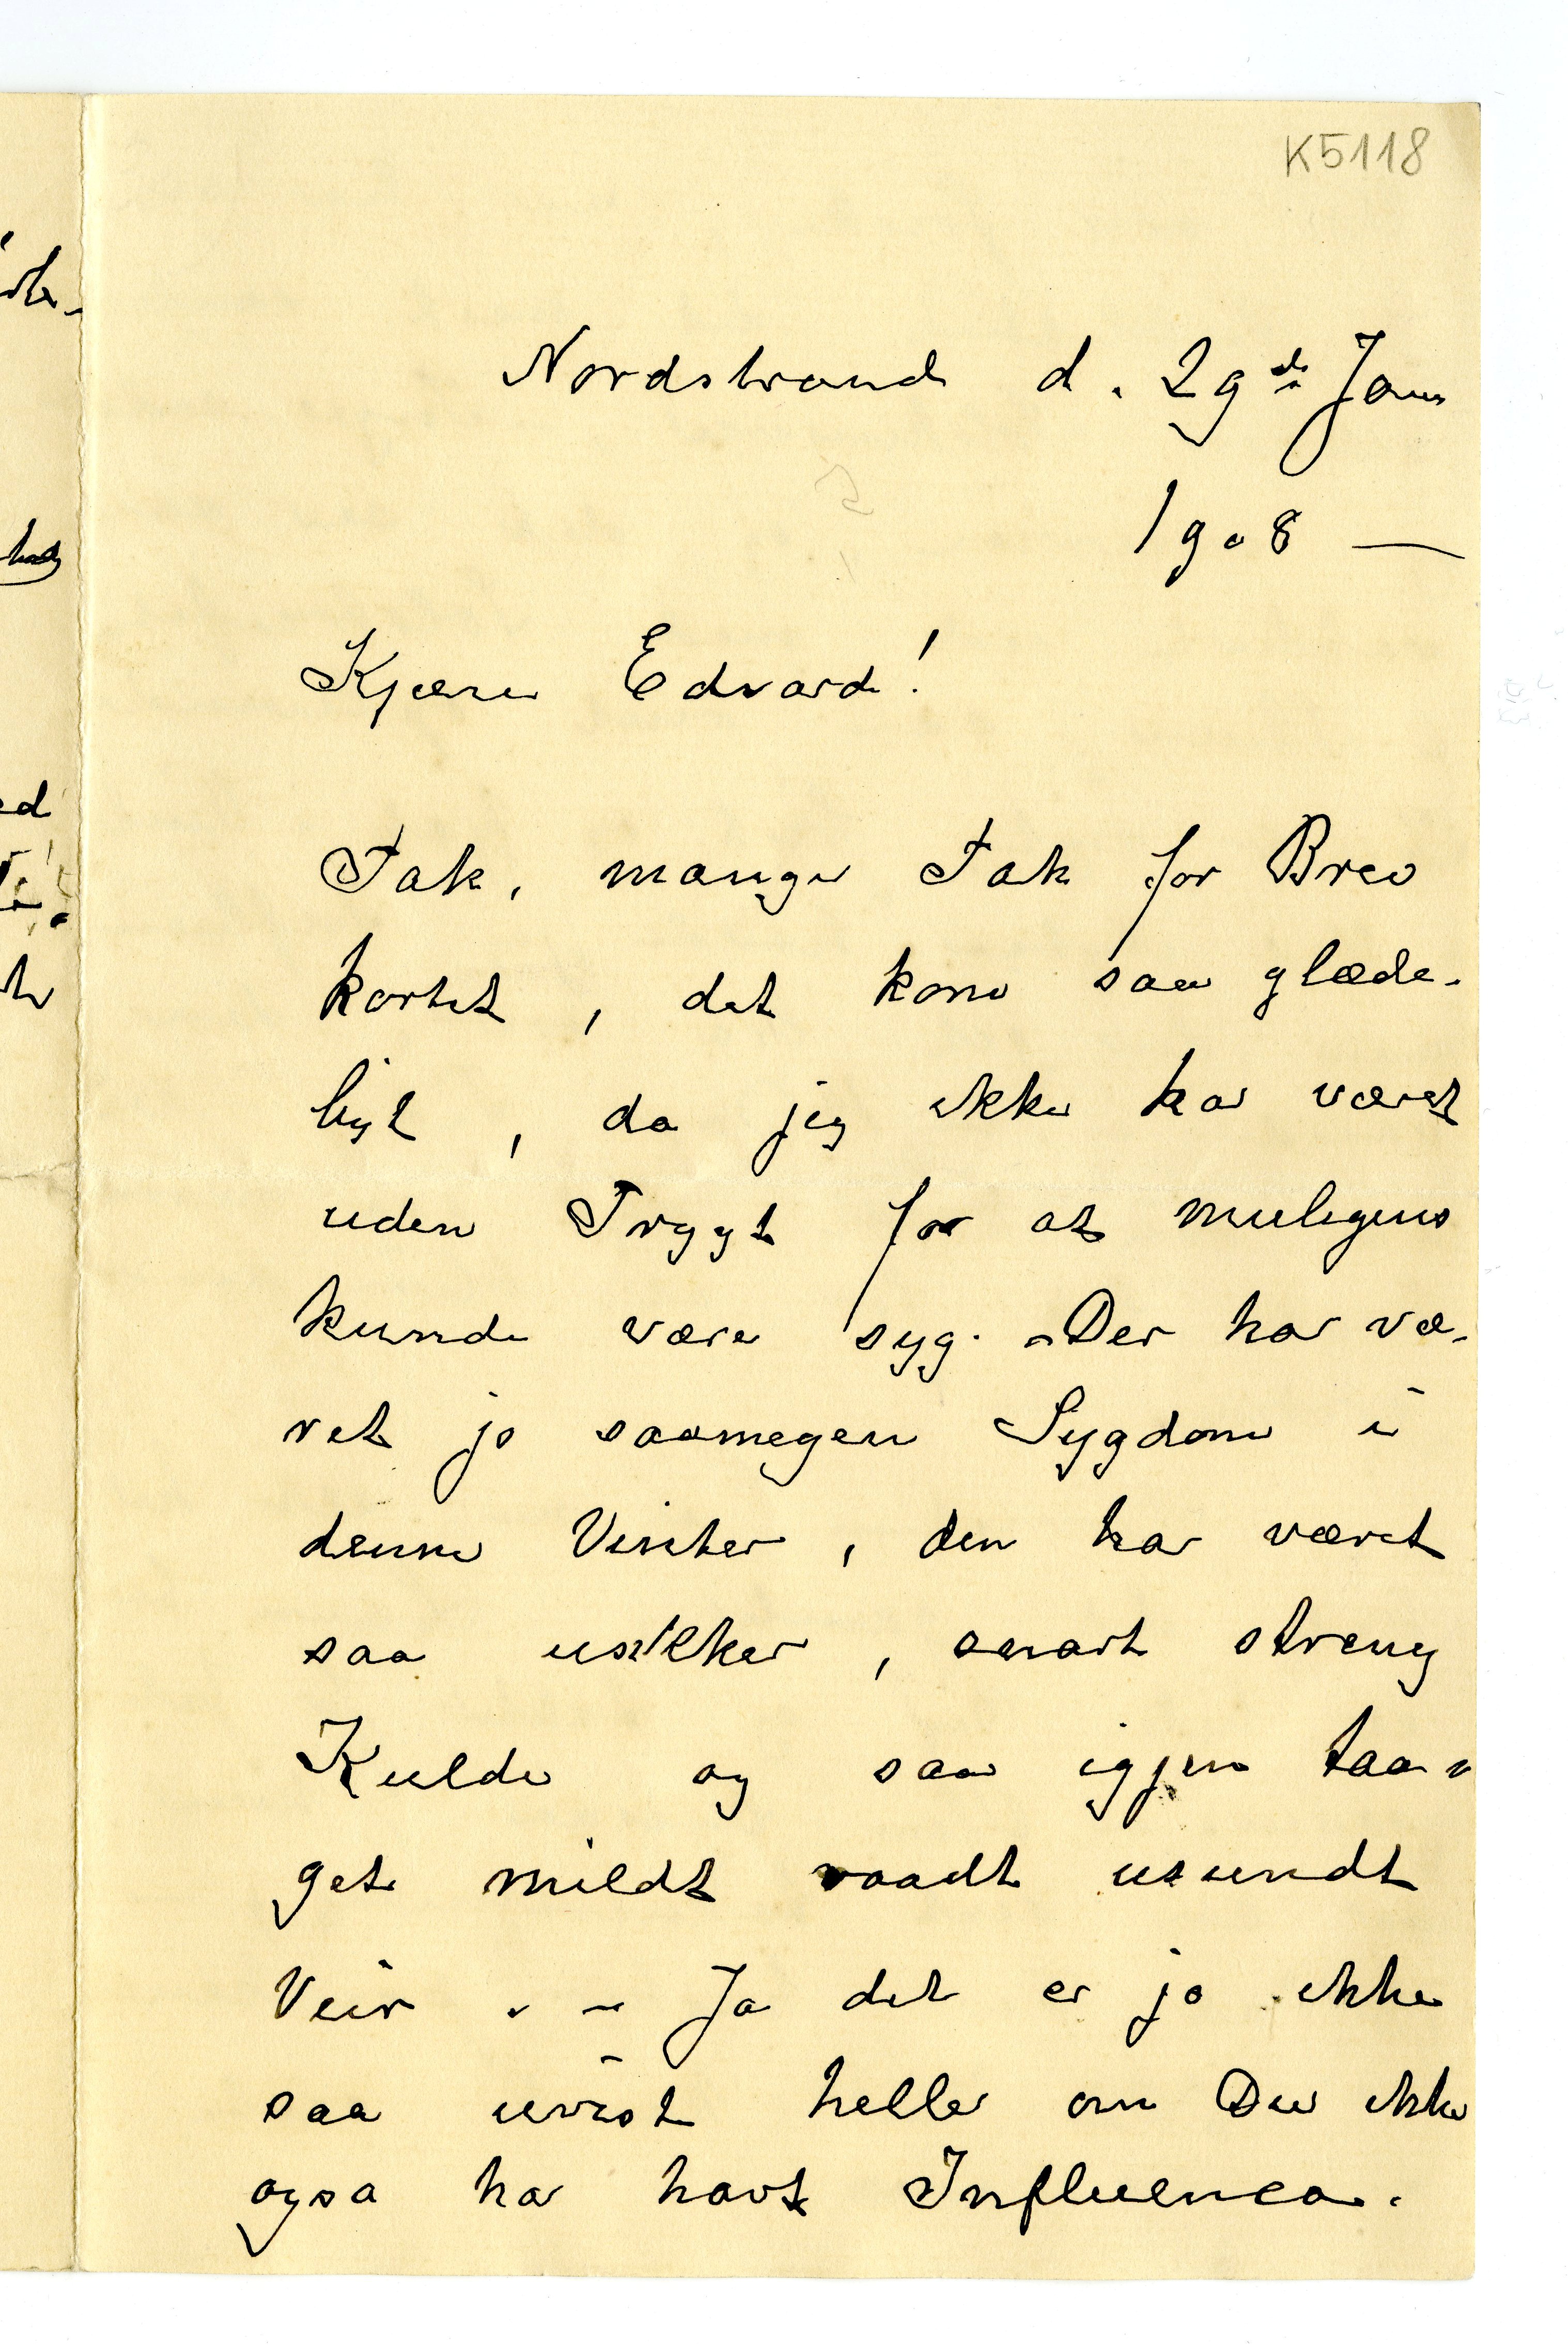 K5118
Nordstrand d. 29de Jan
1908 —
Kjære Edvard!
Tak, mange Tak for Brev
kortet, det kom saa glæde-
ligt, da jeg ikke har været
uden Frygt for at muligens
kunde være syg. – Der har væ-
ret jo saamegen Sygdom i
denne Vinter, den har været
saa usikker, snart streng
Kulde og saa igjen taa-
get mildt vaadt usundt
Veir. – Ja det er jo ikke
saa uvist heller om Du ikke
ogsa har havt Influenca.